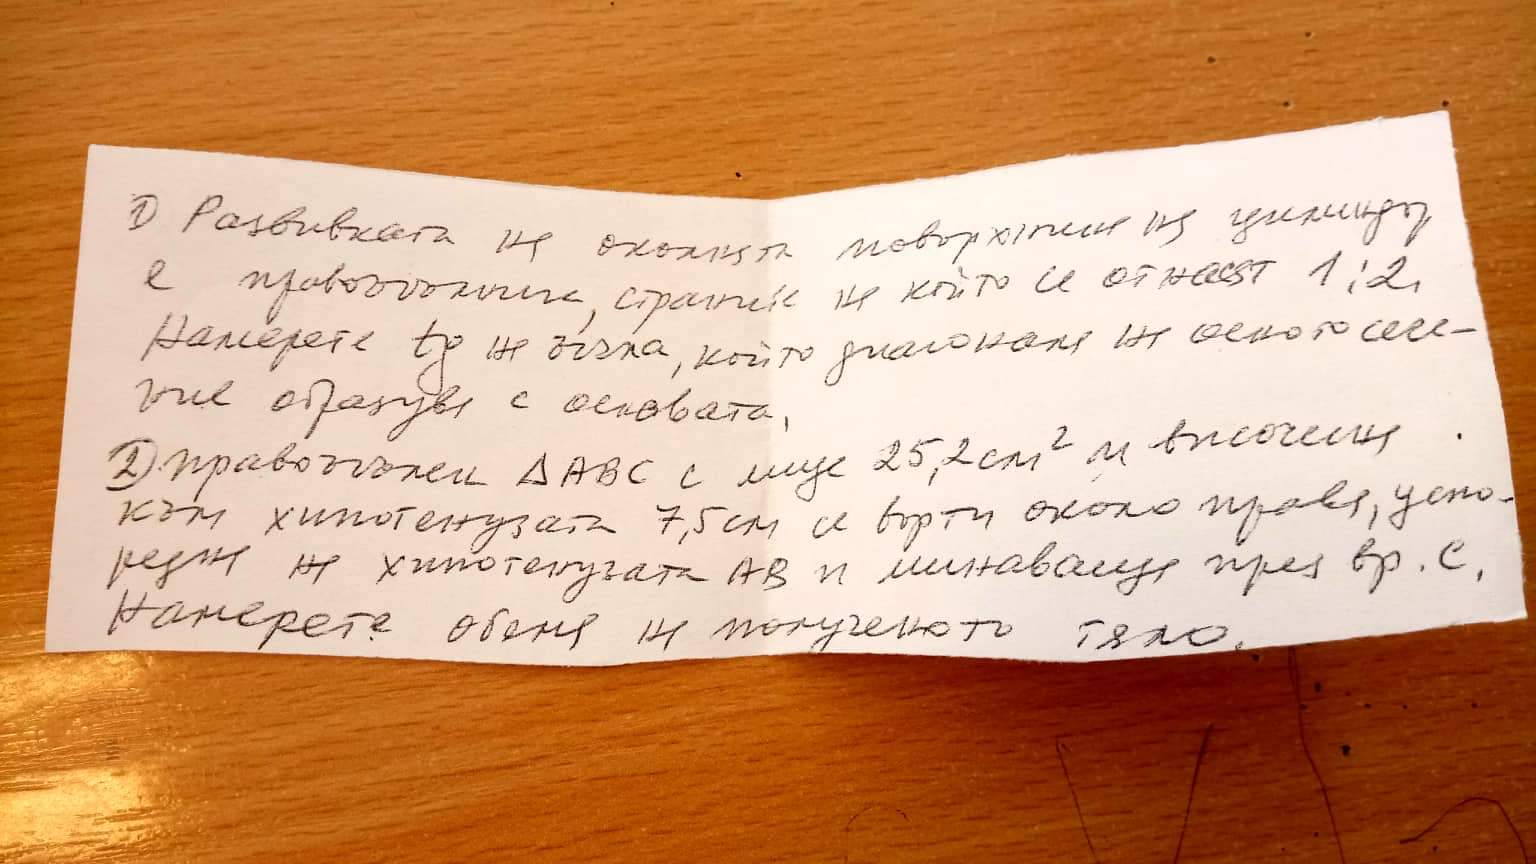 1) Развивката на околната повърхнина на цилиндър
е правоъгълник, страните на който се отнасят 1:2.
Намерете tg на ъгъла, който диагонала на осното сече-
ние образува с основата.
2) Правоъгълен ΔABC с лице 25,2 cm² и височина
към хипотенузата 7,5 cm се върти около права, успо-
редна на хипотенузата AB и минаваща през вр. C.
Намерете обема на полученото тяло.